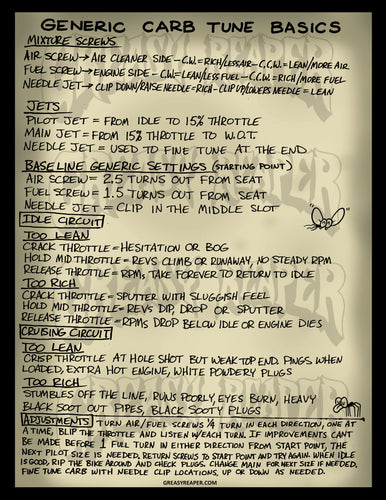 GENERIC CARB TUNE BASICS
MIXTURE SCREWS
AIR SCREW→AIR CLEANER SIDE - C.W.=RICH/LESS AIR - C.C.W.=LEAN/MORE AIR
FUEL SCREW→ENGINE SIDE - C.W.=LEAN/LESS FUEL - C.C.W.=RICH/MORE FUEL
NEEDLE JET→CLIP DOWN/RAISE NEEDLE=RICH - CLIP UP/LOWERS NEEDLE=LEAN
JETS
PILOT JET = FROM IDLE TO 15% THROTTLE
MAIN JET = FROM 15% THROTTLE TO W.O.T.
NEEDLE JET = USED TO FINE TUNE AT THE END
BASELINE GENERIC SETTINGS (STARTING POINT)
AIR SCREW = 2.5 TURNS OUT FROM SEAT
FUEL SCREW = 1.5 TURNS OUT FROM SEAT
NEEDLE JET = CLIP IN THE MIDDLE SLOT
IDLE CIRCUIT
TOO LEAN
CRACK THROTTLE = HESITATION OR BOG
HOLD MID THROTTLE = REVS CLIMB OR RUNAWAY, NO STEADY RPM
RELEASE THROTTLE = RPMs TAKE FOREVER TO RETURN TO IDLE
TOO RICH
CRACK THROTTLE = SPUTTER WITH SLUGGISH FEEL
HOLD MID THROTTLE = REVS DIP, DROP OR SPUTTER
RELEASE THROTTLE = RPMs DROP BELOW IDLE OR ENGINE DIES
CRUISING CIRCUIT
TOO LEAN
CRISP THROTTLE AT HOLE SHOT BUT WEAK TOP END. PINGS WHEN
LOADED, EXTRA HOT ENGINE, WHITE POWDERY PLUGS
TOO RICH
STUMBLES OFF THE LINE, RUNS POORLY, EYES BURN, HEAVY
BLACK SOOT OUT PIPES, BLACK SOOTY PLUGS
ADJUSTMENTS TURN AIR/FUEL SCREWS 1/4 TURN IN EACH DIRECTION, ONE AT
A TIME, BLIP THE THROTTLE AND LISTEN W/EACH TURN. IF IMPROVEMENTS CANT
BE MADE BEFORE 1 FULL TURN IN EITHER DIRECTION FROM START POINT, THE
NEXT PILOT SIZE IS NEEDED. RETURN SCREWS TO START POINT AND TRY AGAIN. WHEN IDLE
IS GOOD, RIP THE BIKE AROUND AND CHECK PLUGS. CHANGE MAIN FOR NEXT SIZE IF NEEDED.
FINE TUNE CARB WITH NEEDLE CLIP LOCATIONS, UP OR DOWN AS NEEDED.
GREASYREAPER.COM